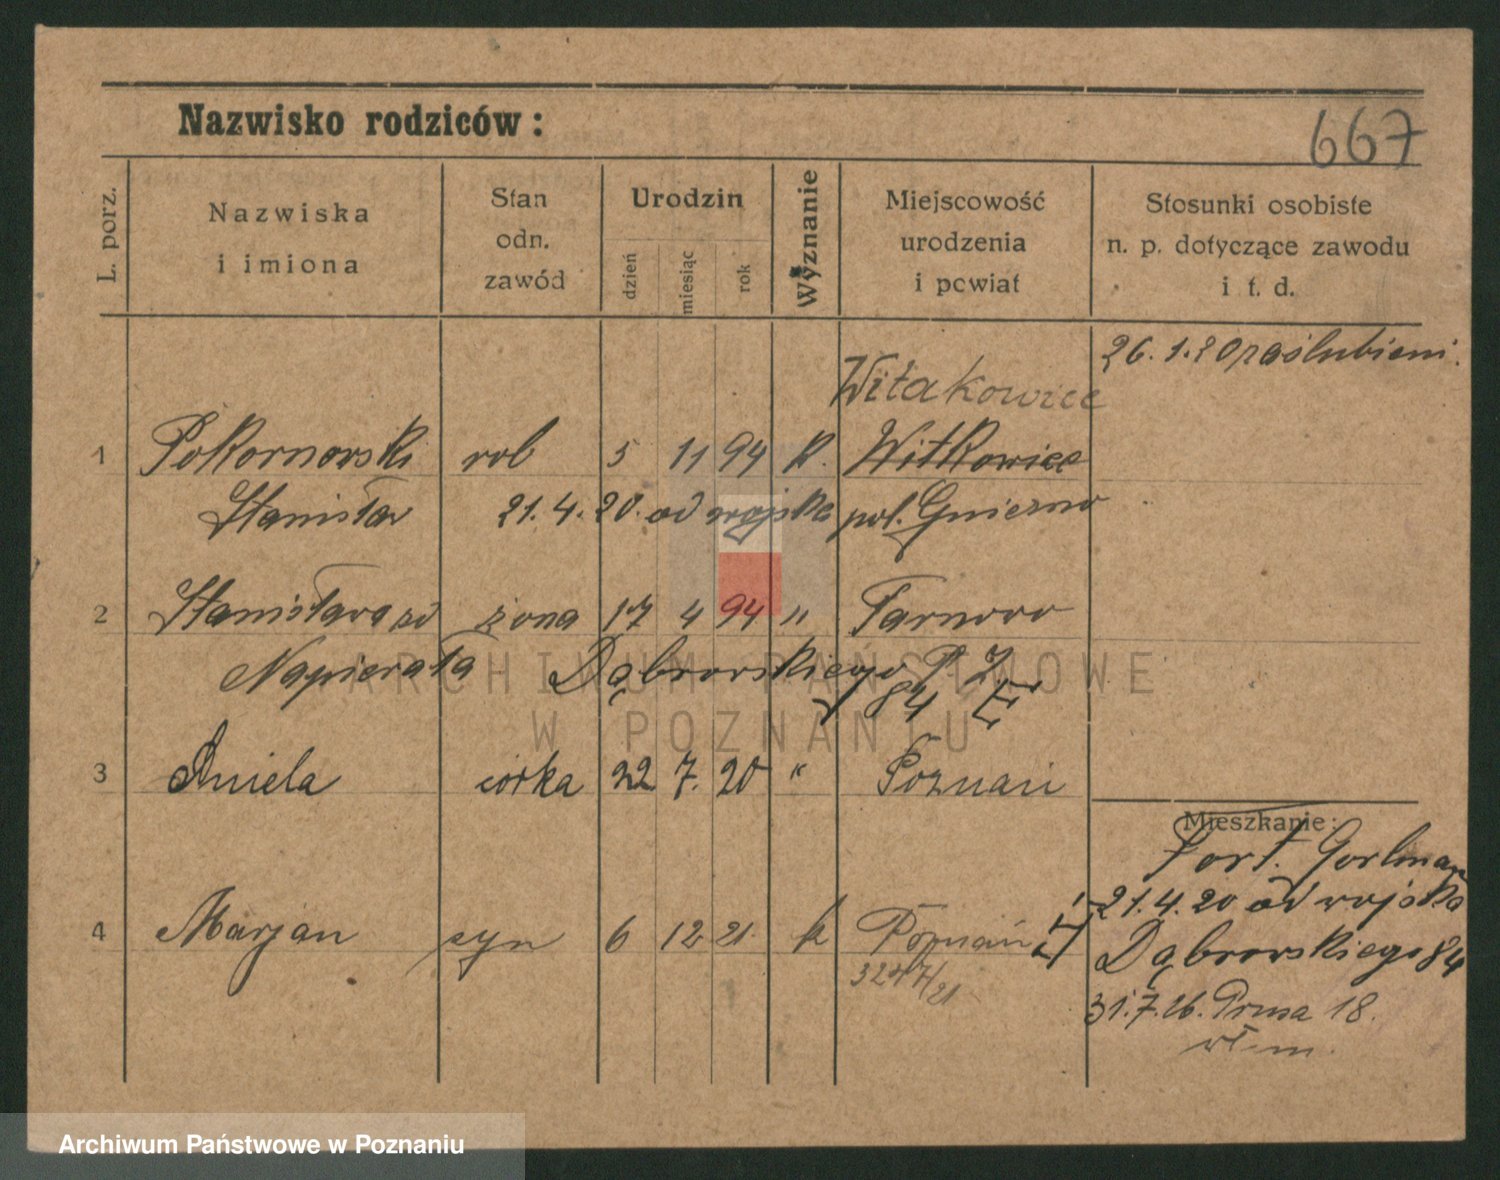 Nazwisko rodziców:
667
L. porz.
Nazwiska
i imiona
Stan
odn.
zawód
Urodzin
dzień
miesiąc
rok
Wyznanie
Miejscowość
urodzenia
i powiat
Stosunki osobiste
n. p. dotyczące zawodu
i t. d.
26.1.20 zaślubieni.
Witakowice
1 Pokornowski rob 5 11 94 k. Witkowice
Stanisław 21.4.20. od wojska pow. Gniezno
2 Stanisława zd żona 17 4 94 " Tarnowo
Napierała Dąbrowskiego
84
3 Aniela córka 22 7. 20 " Poznań
Mieszkanie:
Fort.
21.4.20 od wojska
4 Marjan syn 6 12 21. k Poznań
Dąbrowskiego 84
31.7.26. Prusa 18.
ARCHIWUM PAŃSTWOWE
W POZNANIU
Archiwum Państwowe w Poznaniu